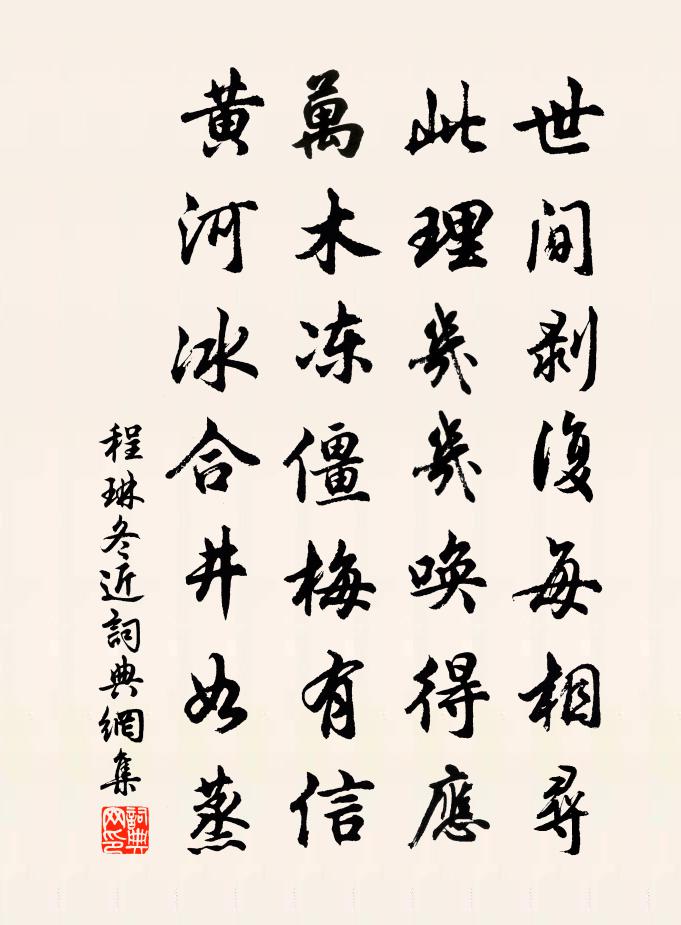 世間剥復每相尋
此理幾幾喚得應
萬木冻僵梅有信
黃河冰合井如蒸
程琳冬近詞典網集
詞典網印